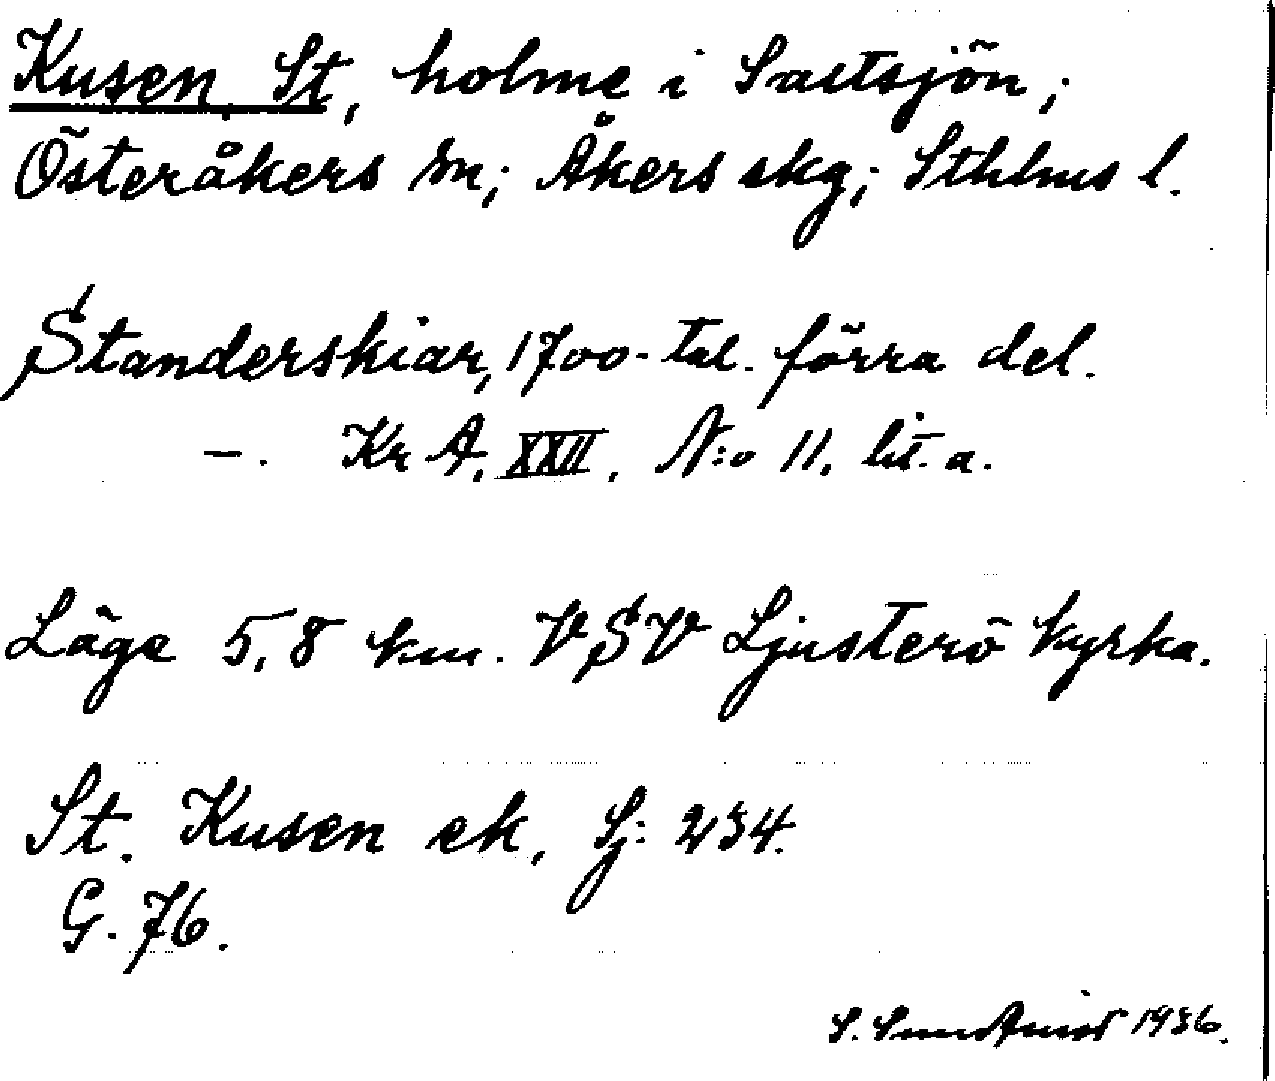 Kusen, St, holme i Saltsjön;
Österåkers sn; Åkers skg; Sthlms l.
Standerskiar, 1700-tal. förra del.
—. Kr A, XXII, N:o 11, lit. a.
Läge 5,8 km. VSV Ljusterö kyrka.
St. Kusen ek, Sj: 234.
G. 76.
S. Sundqvist 1936.